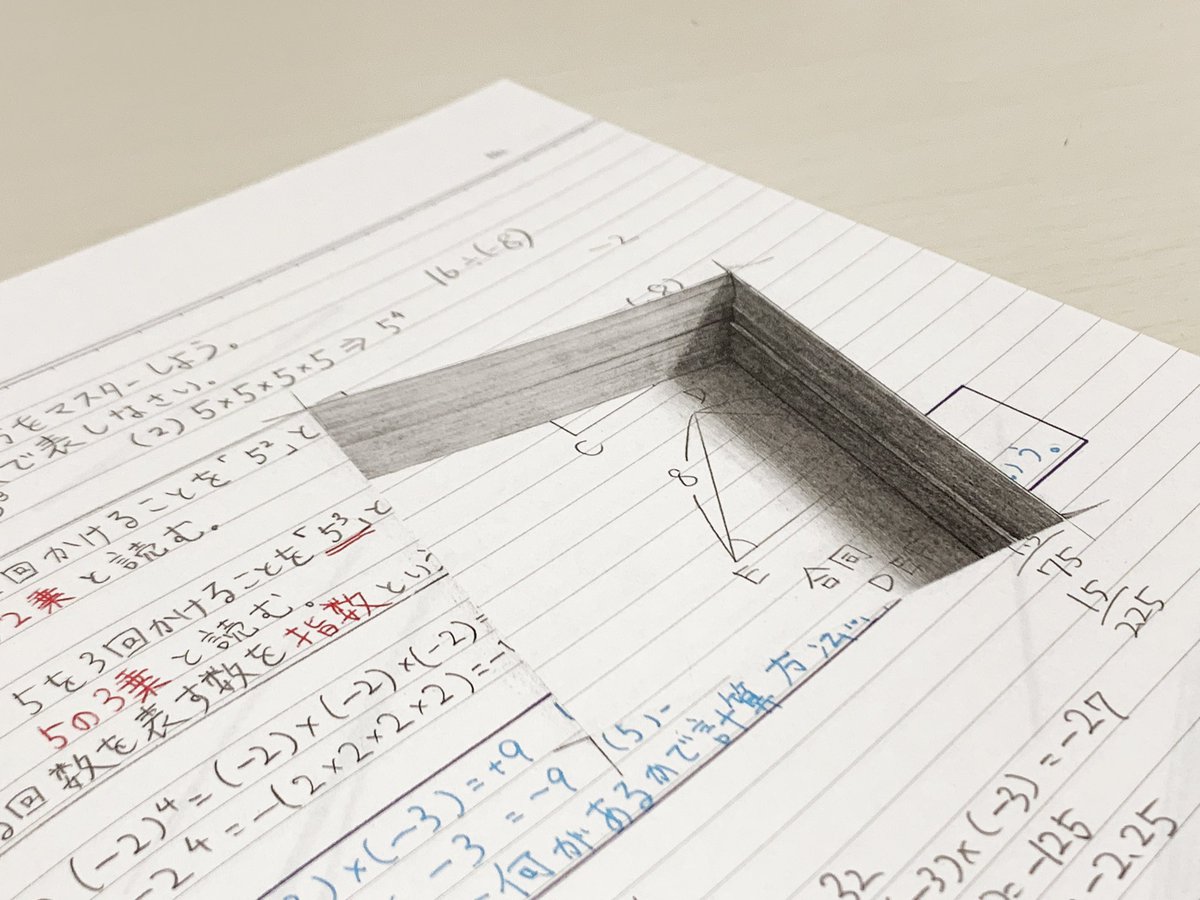 No.
16÷(-8)
-2
をマスターしよう。
で表しなさい。
(2) 5×5×5×5⇒5⁴
(-8)
回かけることを「5²」と
2乗と読む。
5を3回かけることを「5³」と
5の3乗と読む。
回数を表す数を指数とい
(-2)⁴=(-2)×(-2)×(-2)
-2⁴=-(2×2×2×2)=-
)×(-3)=+9
-3=-9
(5)-
何があるかで計算方法…
C
8
E
合同
D
う。
75
15
225
×(-3)=-27
-3)×
=-125
-2.25
32